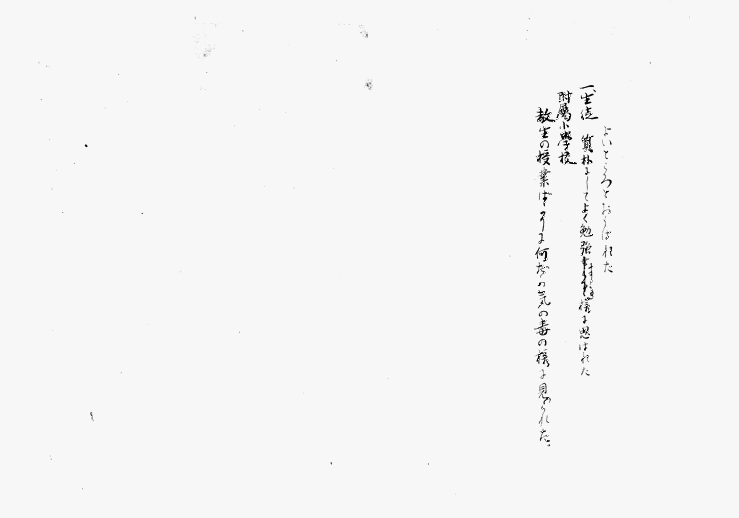 よいところとおもはれた
一、生徒 質朴にしてよく勉強する様に思はれた
附属小学校
教生の授業ばかりで何だか気の毒の様に見られた。